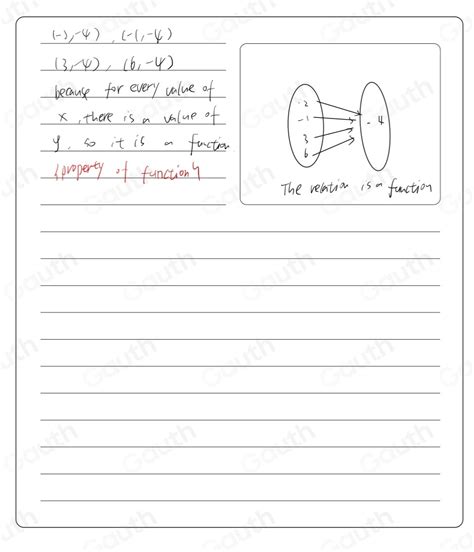 (-2,-4), (-1,-4)
(3,-4), (6,-4)
because for every value of
x, there is a value of
y, so it is a function
{property of function}
-2
-1
3
6
-4
The relation is a function